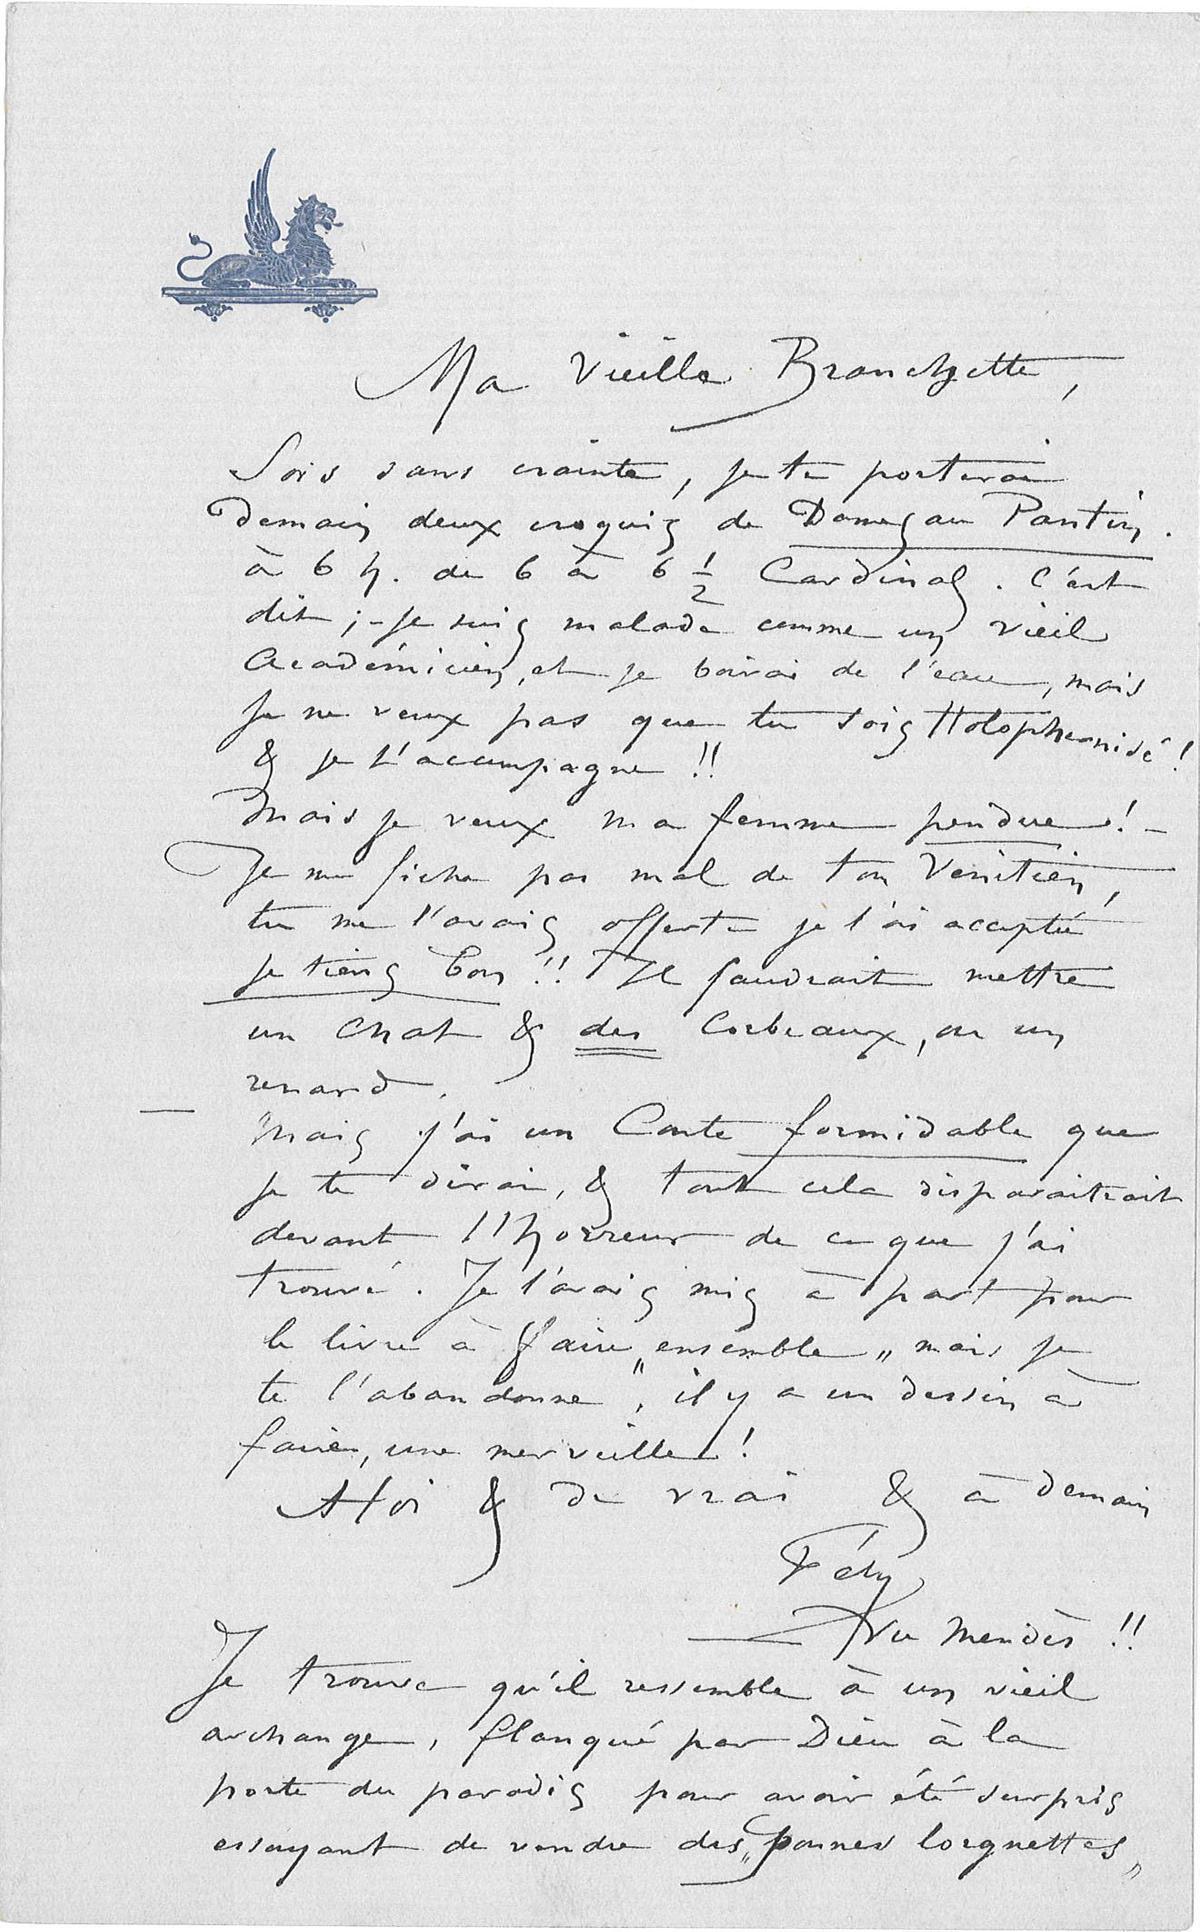 Ma Vieille Branchette,
Sois sans crainte, je te porterai
Demain deux croquis de Dames au Pantin.
à 6 h. de 6 à 6 1/2 Cardinal. C'est
dit ; - je suis malade comme un vieil
Académicien, et je boirai de l'eau, mais
je ne veux pas que tu sois Holophernisé !
& je t'accompagne !!
Mais je veux ma femme pendue ! -
Je me fiche pas mal de ton Vénitien,
tu me l'avais offerte je l'ai acceptée
je tiens bon !! Il faudrait mettre
un chat & des Corbeaux, ou un
renard.
— Mais j'ai un Conte formidable que
je te dirai, & tout cela disparaitrait
devant l'horreur de ce que j'ai
trouvé. Je l'avais mis à part pour
le livre à faire „ensemble„ mais je
te l'abandonne, il y a un dessin à
faire, une merveille !
A toi & de vrai & à demain
Fély
— Vu Mendès !!
Je trouve qu'il ressemble à un vieil
archange, flanqué par Dieu à la
porte du paradis pour avoir été surpris
essayant de vendre des „ponnes lorgnettes„